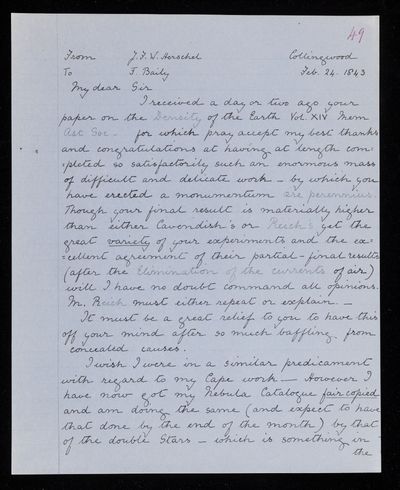 49
From J.F.W. Herschel Collingwood
To F. Baily Feb. 24. 1843
My dear Sir
I received a day or two ago your
paper on the Density of the Earth Vol. XIV Mem
Ast Soc - for which pray accept my best thanks
and congratulations at having at length com-
-pleted so satisfactorily such an enormous mass
of difficult and delicate work - by which you
have erected a monumentum ære perennius.
Though your final result is materially higher
than either Cavendish's or Reich's yet the
great variety of your experiments and the ex=
=cellent agreement of their partial-final results
(after the Elimination of the currents of air)
will I have no doubt command all opinions.
M. Reich must either repeat or explain. —
It must be a great relief to you to have this
off your mind after so much baffling from
concealed causes.
I wish I were in a similar predicament
with regard to my Cape work — However I
have now got my Nebula Catalogue fair copied
and am doing the same (and expect to have
that done by the end of the month) by that
of the double Stars - which is something in
the